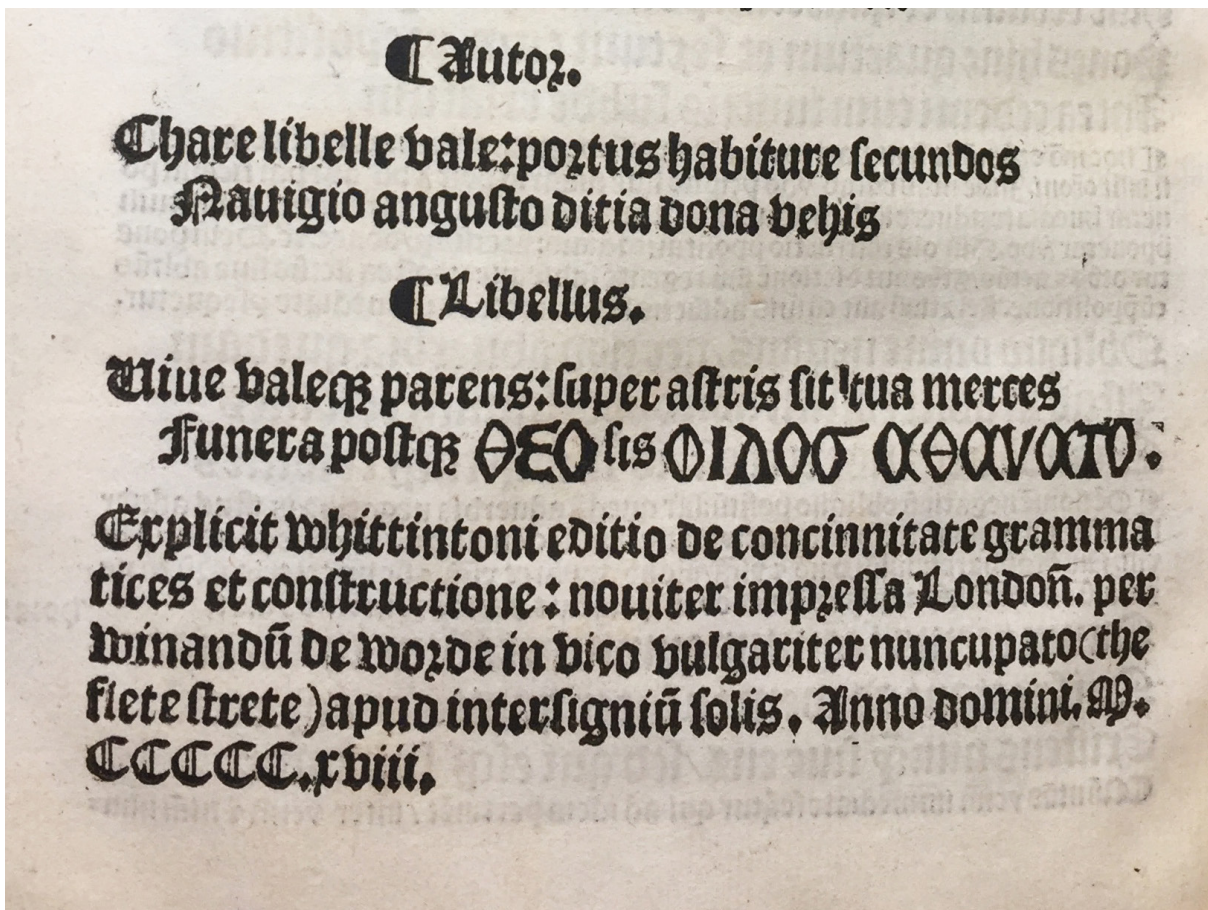 ¶ Autor.
Chare libelle vale: portus habiture secundos
Nauigio angusto ditia dona vehis
¶ Libellus.
Uiue valeqꝫ parens: super astris sit tua merces
Funera postqꝫ ΘΕΟ sis ΦΙΛΟσ αθανατο.
Explicit whittintoni editio de concinnitate gramma
tices et constructione: nouiter impressa Londoñ. per
winandū de worde in vico vulgariter nuncupato (the
flete strete) apud intersigniū solis. Anno domini. M.
CCCCC.xviii.